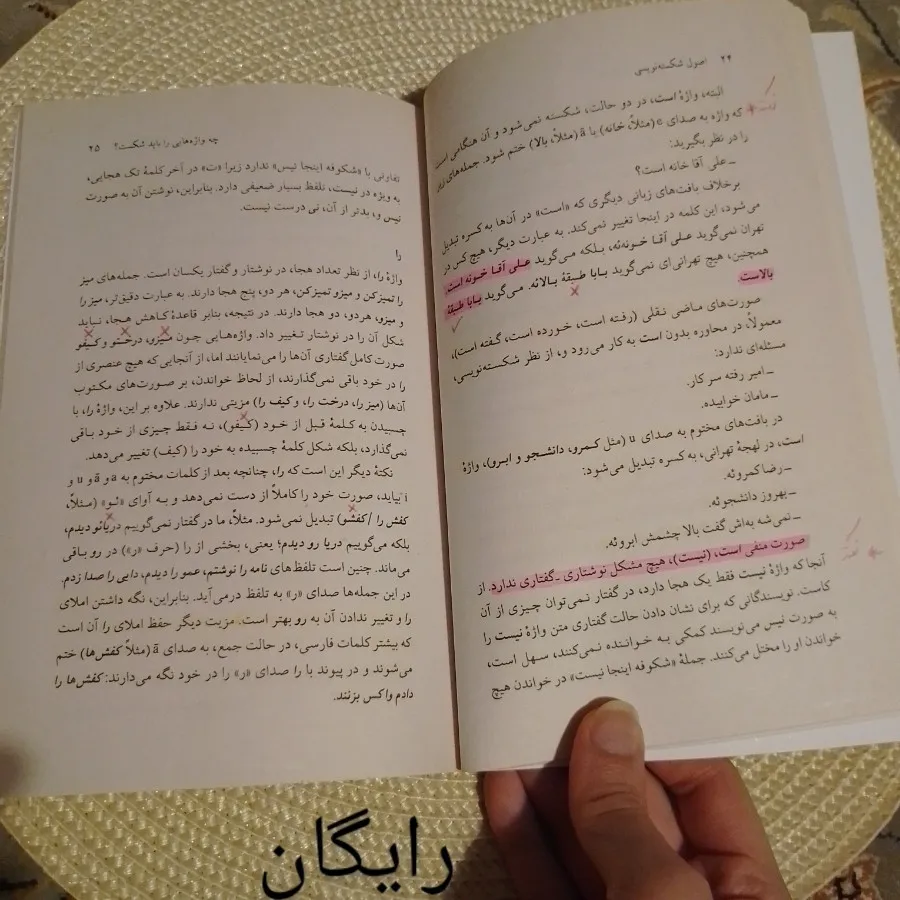 ۲۴ اصول شکسته‌نویسی
البته، واژهٔ است، در دو حالت، شکسته نمی‌شود و آن هنگامی است
که واژه به صدای e (مثلاً، خانه) یا ā (مثلاً، بالا) ختم شود. جمله‌های زیر
را در نظر بگیرید:
ـ علی آقا خانه است؟
برخلاف بافت‌های زبانی دیگری که «است» در آن‌ها به کسره تبدیل
می‌شود، این کلمه در اینجا تغییر نمی‌کند. به عبارت دیگر، هیچ کس در
تهران نمی‌گوید علی آقا خونه‌ئه، بلکه می‌گوید علی آقا خونه است.
همچنین، هیچ تهرانی‌ای نمی‌گوید بابا طبقهٔ بالائه. می‌گوید بابا طبقهٔ
بالاست.
صورت‌های ماضی نقلی (رفته است، خورده است، گفته است)،
معمولاً، در محاوره بدون است به کار می‌رود و، از نظر شکسته‌نویسی،
مسئله‌ای ندارد:
ـ امیر رفته سر کار.
ـ مامان خوابیده.
در بافت‌های مختوم به صدای u (مثل کمرو، دانشجو و ابرو)، واژهٔ
است، در لهجهٔ تهرانی، به کسره تبدیل می‌شود:
ـ رضا کمروئه.
ـ بهروز دانشجوئه.
ـ نمی‌شه به‌اش گفت بالا چشمش ابروئه.
صورت منفی است، (نیست)، هیچ مشکل نوشتاری ـ گفتاری ندارد. از
آنجا که واژهٔ نیست فقط یک هجا دارد، در گفتار نمی‌توان چیزی از آن
کاست. نویسندگانی که برای نشان دادن حالت گفتاری متن واژهٔ نیست را
به صورت نیس می‌نویسند کمکی به خواننده نمی‌کنند، سهل است،
خواندن او را مختل می‌کنند. جملهٔ «شکوفه اینجا نیست» در خواندن هیچ
چه واژه‌هایی را باید شکست؟ ۲۵
تفاوتی با «شکوفه اینجا نیس» ندارد زیرا «ت» در آخر کلمهٔ تک هجایی،
به ویژه در نیست، تلفظ بسیار ضعیفی دارد. بنابراین، نوشتن آن به صورت
نیس و، بدتر از آن، نی درست نیست.
را
واژهٔ را، از نظر تعداد هجا، در نوشتار و گفتار یکسان است. جمله‌های میز
را تمیز کن و میزو تمیز کن، هر دو، پنج هجا دارند. به عبارت دقیق‌تر، میز را
و میزو، هر دو، دو هجا دارند. در نتیجه، بنابر قاعدهٔ کاهش هجا، نباید
شکل آن را در نوشتار تغییر داد. واژه‌هایی چون میزو، درختو و کیفو
صورت کامل گفتاری آن‌ها را می‌نمایانند اما، از آنجایی که هیچ عنصری از
را در خود باقی نمی‌گذارند، از لحاظ خواندن، بر صورت‌های مکتوب
آن‌ها (میز را، درخت را، و کیف را) مزیتی ندارند. علاوه بر این، واژهٔ را، با
چسبیدن به کلمهٔ قبل از خود (کیفو)، نه فقط چیزی از خود باقی
نمی‌گذارد، بلکه شکل کلمهٔ چسبیده به خود را (کیف) تغییر می‌دهد.
نکتهٔ دیگر این است که را، چنانچه بعد از کلمات مختوم به a و ā و u و
i بیاید، صورت خود را کاملاً از دست نمی‌دهد و به آوای «ئو» (مثلاً،
کفش را / کفشو) تبدیل نمی‌شود. مثلاً، ما در گفتار نمی‌گوییم دریائو دیدم،
بلکه می‌گوییم دریا رو دیدم؛ یعنی، بخشی از را (حرف «ر») در رو باقی
می‌ماند. چنین است تلفظ‌های نامه را نوشتم، عمو را دیدم، دایی را صدا زدم.
در این جمله‌ها صدای «ر» به تلفظ درمی‌آید. بنابراین، نگه داشتن املای
را و تغییر ندادن آن به رو بهتر است. مزیت دیگر حفظ املای را آن است
که بیشتر کلمات فارسی، در حالت جمع، به صدای ā (مثلاً کفش‌ها) ختم
می‌شوند و در پیوند با را صدای «ر» را در خود نگه می‌دارند: کفش‌ها را
دادم واکس بزنند.
رایگان